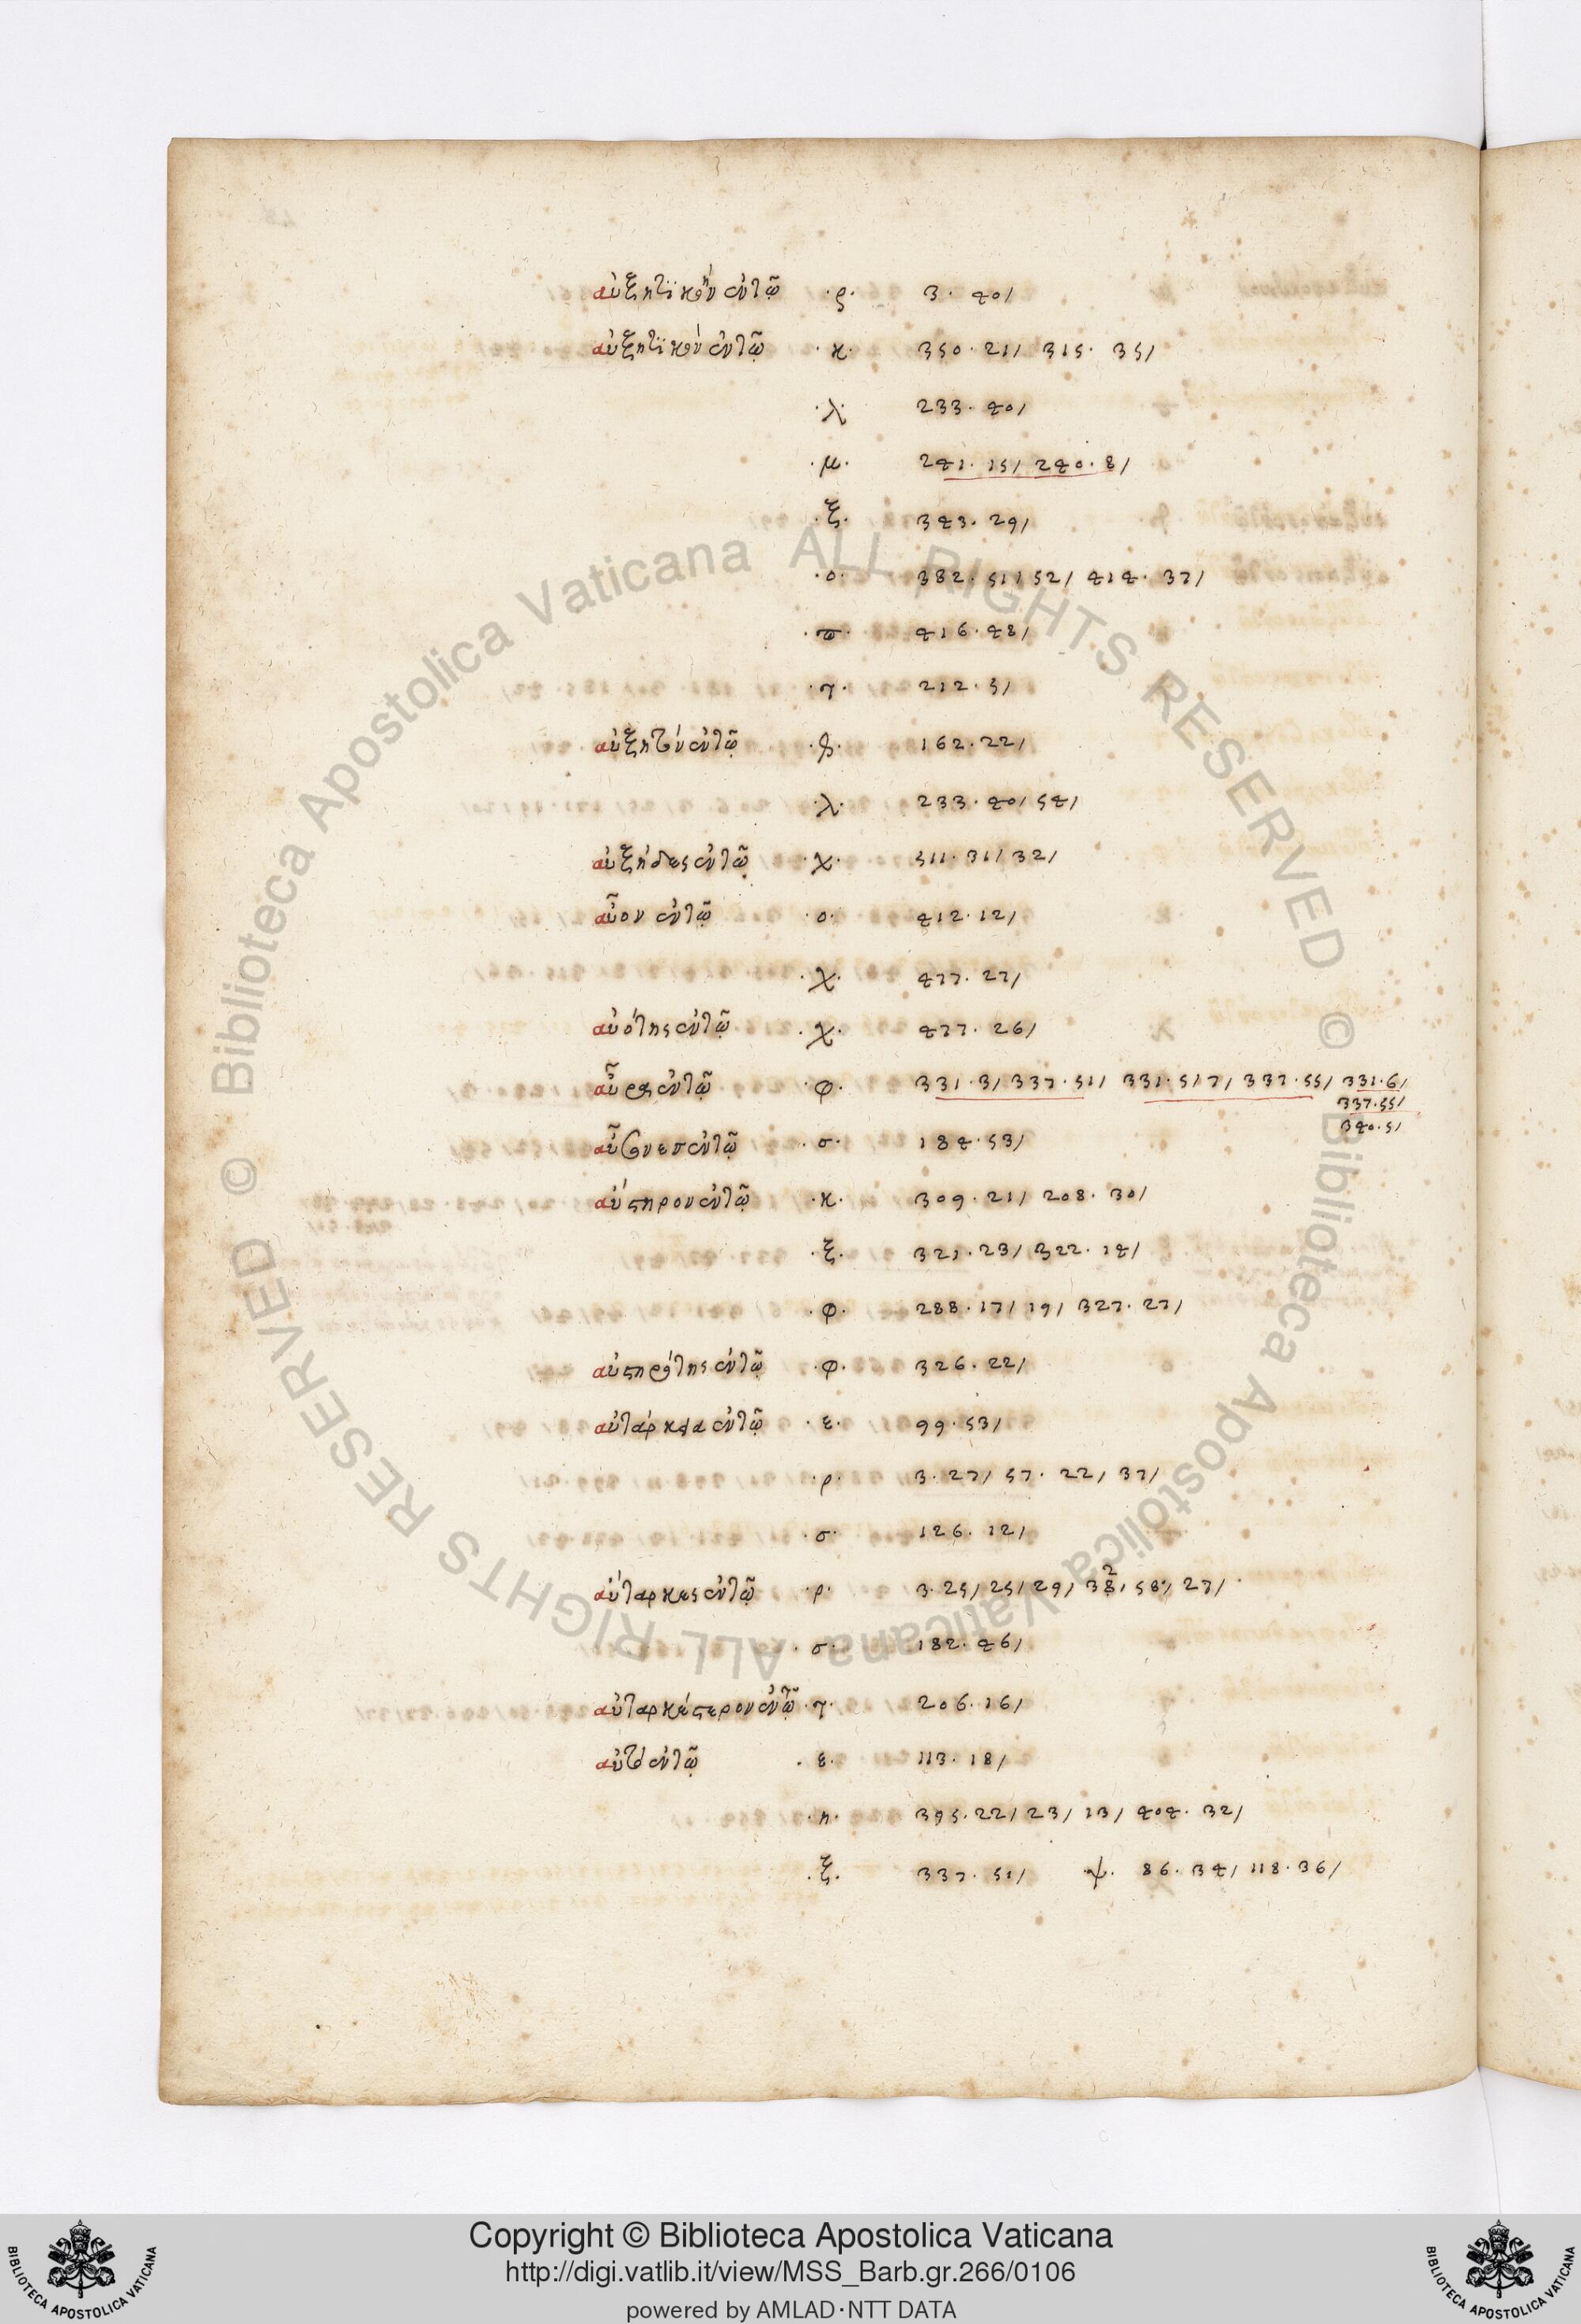 αὐξητϊκὸν ἐν τῷ ·ρ· 3· 40/
αὐξητϊκὸν ἐν τῷ ·κ· 350·21/ 315· 35/
·λ· 233·40/
·μ· 241·15/ 240·8/
·ξ· 343·29/
·ο· 382·51/52/ 414·37/
·π· 416·48/
·τ· 212·5/
αὐξητὸν ἐν τῷ 162·22/
·λ· 233·40/54/
ἐν τῷ ·χ· 511·31/32/
αὖον ἐν τῷ ·ο· 412·12/
·χ· 477·27/
αὐότης ἐν τῷ ·χ· 477·26/
αὖρα ἐν τῷ ·φ· 331·3/ 337·51/ 331·5/7/ 337·55/ 331·6/
337·55/
340·5/
ἐν τῷ ·σ· 184·53/
αὐστηρον ἐν τῷ ·κ· 309·21/ 208·30/
·ξ· 321·23/ 322·14/
·φ· 288·17/19/ 327·27/
αὐστηρότης ἐν τῷ ·φ· 326·22/
αὐτάρκεια ἐν τῷ ·ε· 99·53/
·ρ· 3·27/ 57·22/37/
·σ· 126·12/
αὔταρκες ἐν τῷ ·ρ· 3·25/25/29/ 58·/27/
·σ· 182·46/
αὐταρκέστερον ἐν τῷ ·τ· 206·16/
αὐτὸ ἐν τῷ ·ε· 113·18/
·η· 395·22/23/13/ 404·32/
·ξ· 337·51/ ψ· 86·34/ 118·36/
© Biblioteca Apostolica Vaticana ALL RIGHTS RESERVED © Biblioteca Apostolica Vaticana ALL RIGHTS RESERVED
Copyright © Biblioteca Apostolica Vaticana
http://digi.vatlib.it/view/MSS_Barb.gr.266/0106
powered by AMLAD·NTT DATA
BIBLIOTECA APOSTOLICA VATICANA
BIBLIOTECA APOSTOLICA VATICANA